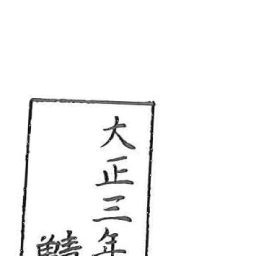 大正三年